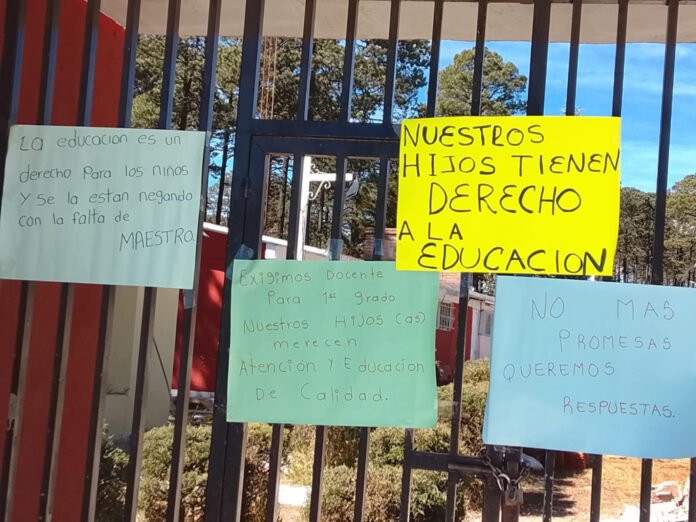 La educacion es un
derecho Para los niños
Y se la estan negando
con la falta de
MAESTRO.
NUESTROS
HIJOS TIENEN
DERECHO
A LA
EDUCACION
Exigimos Docente
Para 1er grado
Nuestros Hijos (as)
merecen
Atención Y Educacion
De Calidad.
NO MAS
PROMESAS
QUEREMOS
RESPUESTAS.